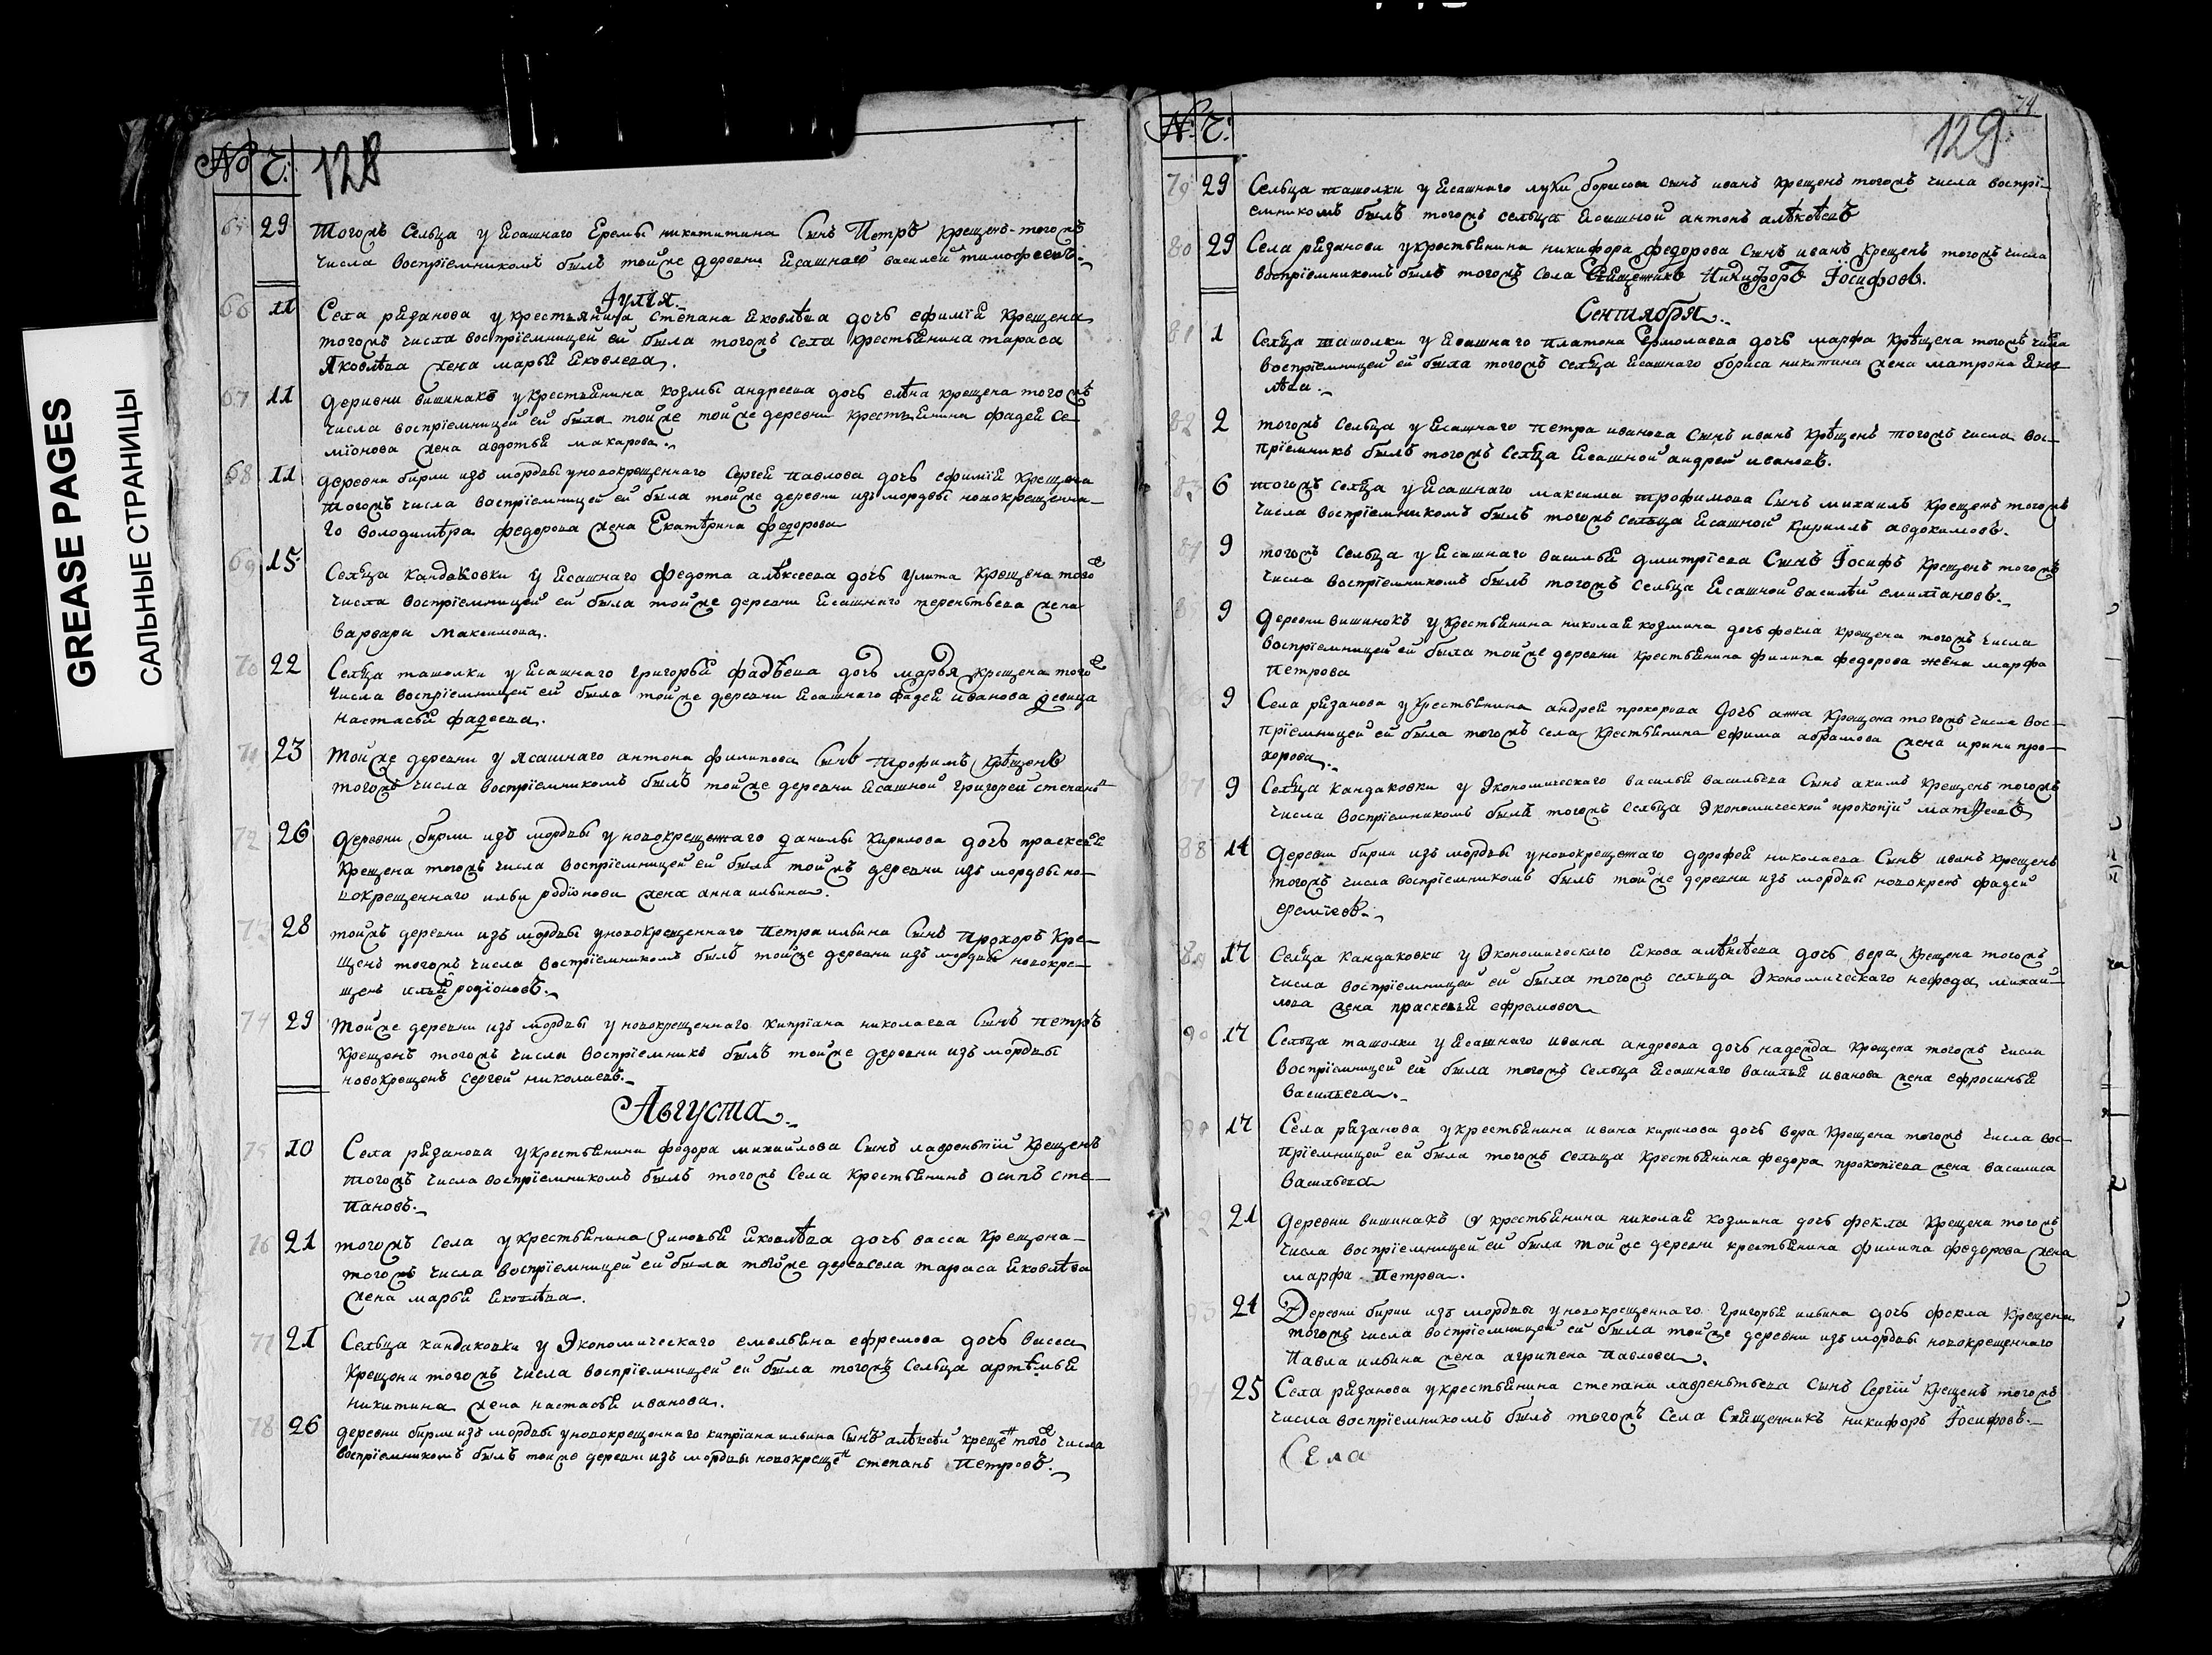 GREASE PAGES
САЛЬНЫЕ СТРАНИЦЫ
№ Ч: 128
65 29 Тогожъ Сельца у Ясашнаго Еремы никитина Сынъ Петръ крещенъ тогожъ
числа воспріемникомъ былъ тойже деревни Ясашнаго василей тимофеевъ.
Іулія.
66 11 Села рязанова у крестьянина Степана яковлѣва дочь ефимія крещена
тогожъ числа воспріемницей ей была тогожъ села крестьянина тараса
Яковлѣва жена марья яковлева.
67 11 деривни вишнакъ у крестьянина козмы андреева дочь елѣна крещена тогожъ
числа воспріемницей ей была тойже тойже деревни крестьянина фадея се
міонова жена авдотья макарова.
68 11 деревни бирли изъ мордвы у новокрещеннаго Сергея павлова дочь ефимія крещена
тогожъ числа воспріемницей ей была тойже деревни изъ мордвы новокрещенна-
го володимѣра федорова жена Екатѣрина федорова
69 15 Сельца Кандаковки у Ясашнаго Федота алѣксеева дочь улита крещена тогож
числа воспріемницей ей была тойже деревни Ясашнаго терентьева жена
варвара максимова.
70 22 Сельца ташолки у Ясашнаго григорья фадѣева дочь марья крещена тогож
числа воспріемницей ей была тойже деревни Ясашнаго фадея иванова девица
настасья фадеева.
71 23 Тойже деревни у ясашнаго антона филипова Сынъ трофимъ крѣщенъ
тогожъ числа воспріемникомъ былъ тойже деревни Ясашной григорей степанъ
72 26 деревни бирли изъ мордвы у новокрещеннаго данилы кирилова дочь праскевія
крещена тогожъ числа воспріемницей ей была тойжъ деревни изъ мордвы но-
вокрещеннаго ильи родіонова жена анна ильина
73 28 тойжъ деревни изъ мордвы у новокрещеннаго петра ильина Сынъ Прохоръ кре-
щенъ тогожъ числа воспріемникомъ былъ тойже деревни изъ мордвы новокре-
щенъ илья родіоновъ.
74 29 тойже деревни изъ мордвы у новокрещеннаго кипріана николаева Сынъ петръ
крещенъ тогожъ числа воспріемникъ былъ тойже деревни изъ мордвы
новокрещенъ сергей николаевъ.
Августа.
75 10 Села рязанова у крестьянина федора михайлова Сынъ лаврентій крещенъ
тогожъ числа воспріемникомъ былъ тогожъ Села крестьянинъ осипъ сте-
пановъ.
76 21 тогожъ села у крестьянина зиновья яковлѣва дочь васса крещена-
тогожъ числа воспріемницей ей была тогоже села тараса яковлѣва
жена марья яковлѣва.
77 21 Сельца кандаковки у Экономическаго емельяна ефремова дочь васса
крещена тогожъ числа воспріемницей ей была тогожъ Сельца артѣмья
никитина жена настасья иванова.
78 26 деревни бирли изъ мордвы у новокрещеннаго кипріана ильина Сынъ алѣксѣй крещен тогож числа
воспріемникомъ былъ тойже деревни изъ мордвы новокрещен степанъ Петровъ.
№ Ч: 74
129
79 29 Сельца ташолки у Ясашнаго луки борисова сынъ иванъ крещенъ тогожъ числа воспрі-
емникомъ былъ тогожъ сельца Ясашной антонъ алѣксѣевъ
80 29 Села рязанова у крестьянина никифора федорова Сынъ иванъ крещенъ тогожъ числа
воспріемникомъ былъ тогожъ села Священникъ Никифоръ Іосифовъ.
Сентября.
81 1 Сельца ташолки у Ясашнаго платона ермолаева дочь марфа крѣщена тогожъ числа
воспріемницей ей была тогожъ сельца Ясашнаго бориса никитина жена матрона яков-
лѣва.
82 2 тогожъ Сельца у Ясашнаго петра иванова Сынъ иванъ крѣщенъ тогожъ числа вос-
пріемникъ былъ тогожъ Сельца Ясашной андрей ивановъ.
83 6 тогожъ сельца у Ясашнаго максима трофимова Сынъ михаилъ крещенъ тогожъ
числа воспріемникомъ былъ тогожъ сельца Ясашной кирилъ авдокимовъ.
84 9 тогожъ Сельца у Ясашнаго василья дмитріева Сынъ Іосифъ крещенъ тогожъ
числа воспріемникомъ былъ тогожъ Сельца Ясашной василѣй
8 9 деревни вишнокъ у крестьянина николая козмина дочь фокла крещена тогожъ числа
воспріемницей ей была тойже деревни крестьянина филипа федорова жена марфа
петрова
9 Села рязанова у крестьянина андрея прохорова дочь анна крещена тогожъ числа вос-
пріемницей ей была тогожъ села крестьянина ефима абрамова жена ирина про-
хорова.
87 9 Сельца кандаковки у Экономическаго василья васильева Сынъ акимъ крещенъ тогожъ
числа воспріемникомъ былъ тогожъ Сельца Экономической прокопій матвеевъ
88 14 деревни бирли изъ мордвы у новокрещеннаго дорофея николаева Сынъ иванъ крещенъ
тогожъ числа воспріемникомъ былъ тойже деревни изъ мордвы новокрещ фадей
еремѣевъ.
89 17 Сельца кандаковки у Экономическаго якова алѣксѣева дочь вера крещена тогожъ
числа воспріемницей ей была тогожъ сельца Экономическаго нефеда михай-
лова жена праскевія ефремова
90 17 Сельца ташолки у Ясашнаго ивана андреева дочь надежда крещена тогожъ числа
воспріемницей ей была тогожъ Сельца Ясашнаго василья иванова жена ефросинья
васильева.
91 17 Села рязанова у крестьянина ивана кирилова дочь вера крещена тогожъ числа вос-
пріемницей ей была тогожъ сельца крестьянина федора прокопіева жена василиса
васильева
92 21 деревни вишнакъ у крестьянина николая козмина дочь фекла крещена тогожъ
числа воспріемницей ей была тойже деревни крестьянина филипа федорова жена
марфа петрова.
93 24 Деревни бирли изъ мордвы у новокрещеннаго григорья ильина дочь фекла крещена
тогожъ числа воспріемницей ей была тойже деревни изъ мордвы новокрещеннаго
павла ильина жена агрипена павлова.
94 25 Села рязанова у крестьянина степана лаврентьева Сынъ Сергій крещенъ тогожъ
числа воспріемникомъ былъ тогожъ Села Священникъ никифоръ Іосифовъ.
Села